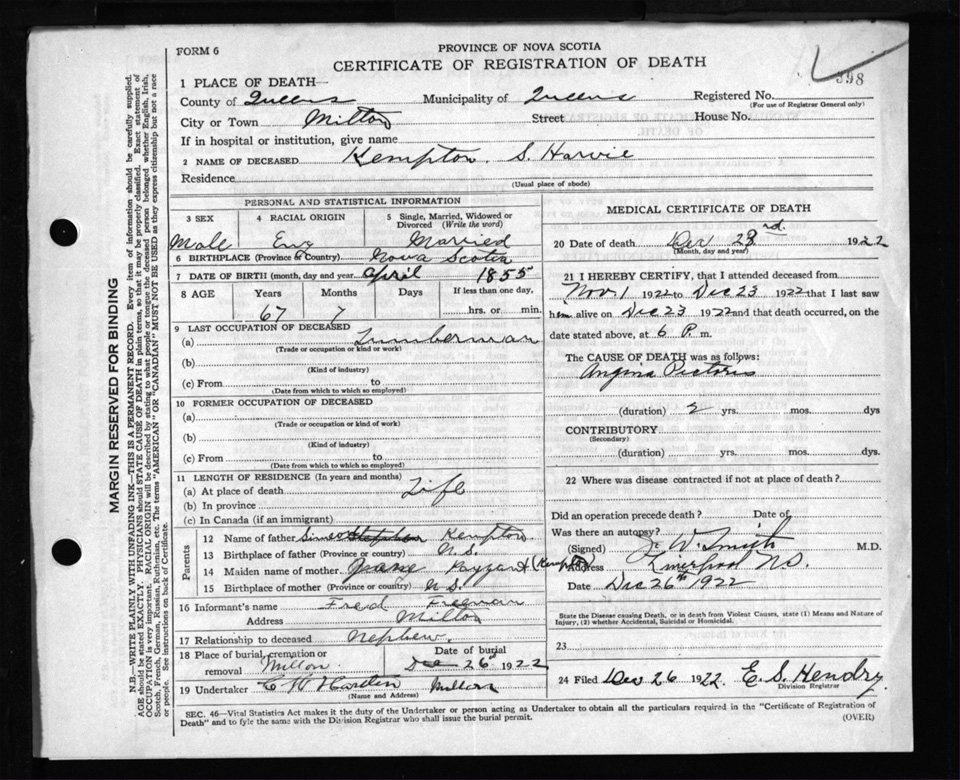 FORM 6
PROVINCE OF NOVA SCOTIA
CERTIFICATE OF REGISTRATION OF DEATH
398
1 PLACE OF DEATH—
County of Queens Municipality of Queens Registered No.
(For use of Registrar General only)
City or Town Milton Street House No.
If in hospital or institution, give name
2 NAME OF DECEASED Kempton S. Harvie
Residence
(Usual place of abode)
PERSONAL AND STATISTICAL INFORMATION
3 SEX 4 RACIAL ORIGIN 5 Single, Married, Widowed or Divorced (Write the word)
Male Eng Married
6 BIRTHPLACE (Province or Country) Nova Scotia
7 DATE OF BIRTH (month, day and year April 1855
8 AGE Years Months Days If less than one day,
67 7 hrs. or min.
9 LAST OCCUPATION OF DECEASED
(a) Lumberman
(Trade or occupation or kind or work)
(b)
(Kind of industry)
(c) From to
(Date from which to which so employed)
10 FORMER OCCUPATION OF DECEASED
(a)
(Trade or occupation or kind of work)
(b)
(Kind of industry)
(c) From to
(Date from which to which so employed)
11 LENGTH OF RESIDENCE (In years and months)
(a) At place of death Life
(b) In province
(c) In Canada (if an immigrant)
Parents
12 Name of father Stephen Kempton
13 Birthplace of father (Province or country) N.S.
14 Maiden name of mother
15 Birthplace of mother (Province or country) N.S.
16 Informant's name Fred Freeman
Address Milton
17 Relationship to deceased Nephew.
18 Place of burial, cremation or removal Milton. Date of burial Dec 26th 1922
19 Undertaker C W Harden Milton
(Name and Address)
MEDICAL CERTIFICATE OF DEATH
20 Date of death Dec 23rd. 1922
(Month, day and year)
21 I HEREBY CERTIFY, that I attended deceased from
Nov 1 1922 to Dec 23 1922 that I last saw
him alive on Dec 23 1922 and that death occurred, on the
date stated above, at 6 P. m.
The CAUSE OF DEATH was as follows:
Angina Pectoris
(duration) 2 yrs. mos. dys
CONTRIBUTORY
(Secondary)
(duration) yrs. mos. dys.
22 Where was disease contracted if not at place of death?
Did an operation precede death? Date of
Was there an autopsy?
(Signed) J. W. Smith M.D.
Address Liverpool N.S.
Date Dec 26th 1922
State the Disease causing Death, or in death from Violent Causes, state (1) Means and Nature of
Injury, (2) whether Accidental, Suicidal or Homicidal.
23
24 Filed Dec 26 1922. E. S. Hendry.
Division Registrar
SEC. 46—Vital Statistics Act makes it the duty of the Undertaker or person acting as Undertaker to obtain all the particulars required in the "Certificate of Registration of
Death" and to fyle the same with the Division Registrar who shall issue the burial permit.
(OVER)
MARGIN RESERVED FOR BINDING
N.B.—WRITE PLAINLY WITH UNFADING INK—THIS IS A PERMANENT RECORD. Every item of information should be carefully supplied.
AGE should be stated EXACTLY. PHYSICIANS should STATE CAUSE OF DEATH in plain terms, so that it may be properly classified. Exact statement of
OCCUPATION is very important. RACIAL ORIGIN will be described by stating to what people or tongue the deceased person belonged whether English, Irish,
Scotch, French, German, Russian, Ruthenian, etc. The terms "AMERICAN" OR "CANADIAN" MUST NOT BE USED as they express citizenship but not a race
or people. See instructions on back of Certificate.